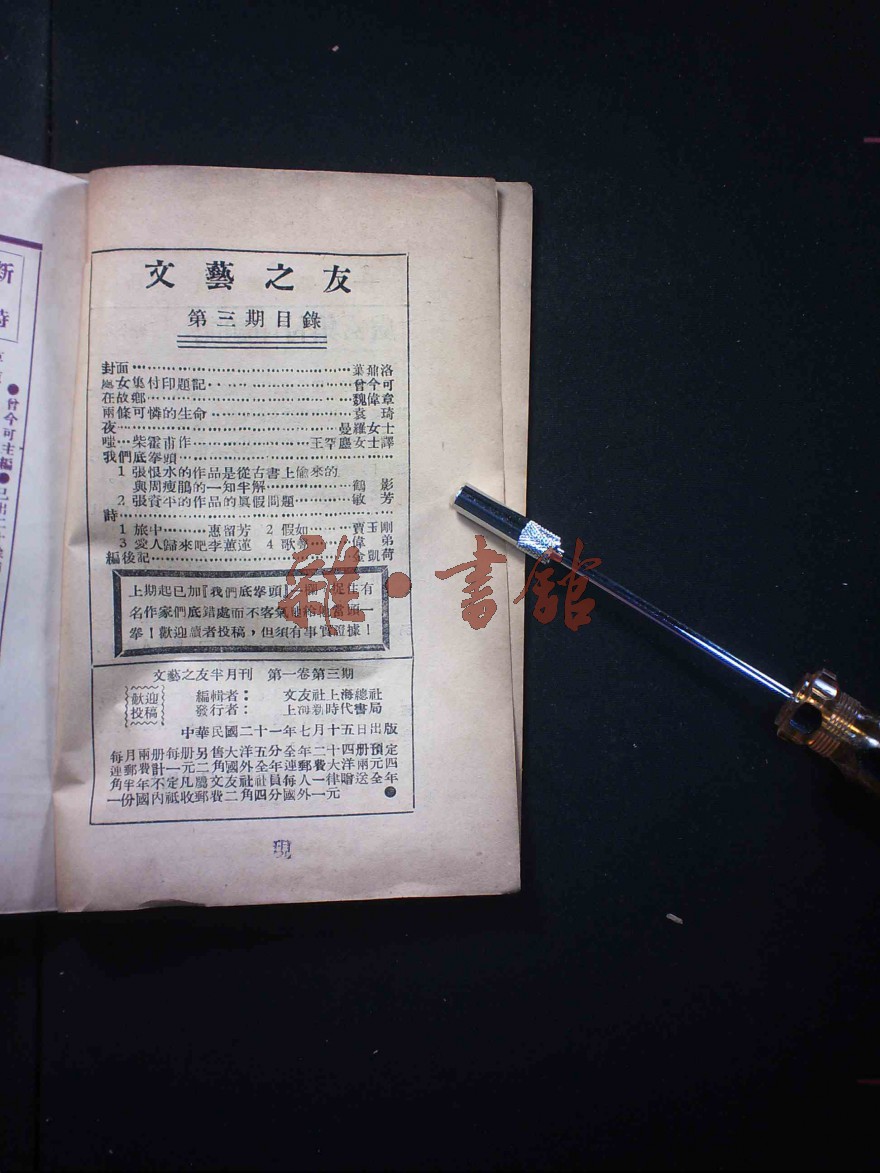 文藝之友
第三期目錄
封面……葉鼎洛
處女集付印題記……曾今可
在故鄉……魏偉章
兩條可憐的生命……袁琦
夜……曼羅女士
嗤…柴霍甫作……王罕塵女士譯
我們底拳頭……
1 張恨水的作品是從古書上偷來的
與周瘦鵑的一知半解……鶴影
2 張資平的作品的眞假問題……敏芳
詩……
1 旅中……惠留芳 2 假如……賈玉剛
3 愛人歸來吧李蕙蓮 4 歌……偉弟
編後記……金凱荷
上期起已加『我們底拳頭』一欄,捉住有
名作家們底錯處而不客氣地給他當頭一
拳!歡迎讀者投稿,但須有事實證據!
文藝之友半月刊 第一卷第三期
歡迎投稿
編輯者: 文友社上海總社
發行者: 上海新時代書局
中華民國二十一年七月十五日出版
每月兩册每册另售大洋五分全年二十四册預定
連郵費計一元二角國外全年連郵費大洋兩元四
角半年不定凡屬文友社社員每人一律贈送全年
一份國內祇收郵費二角四分國外一元
現
新
曾今可主編
雜·書館